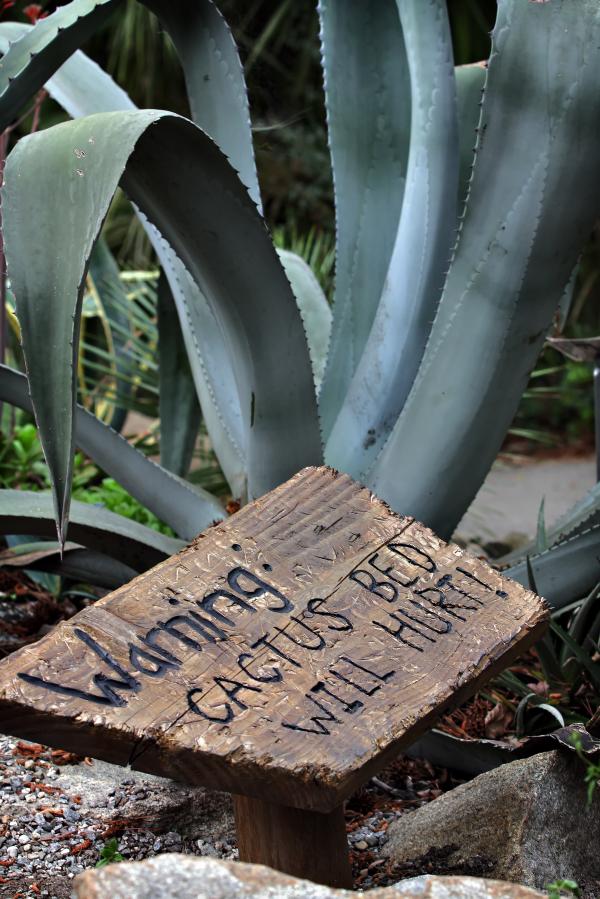 Warning:
CACTUS BED
WILL HURT!